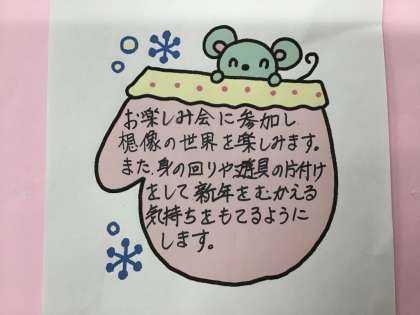 お楽しみ会に参加し
想像の世界を楽しみます。
また、身の回りや遊具の片付け
をして新年をむかえる
気持ちをもてるように
します。